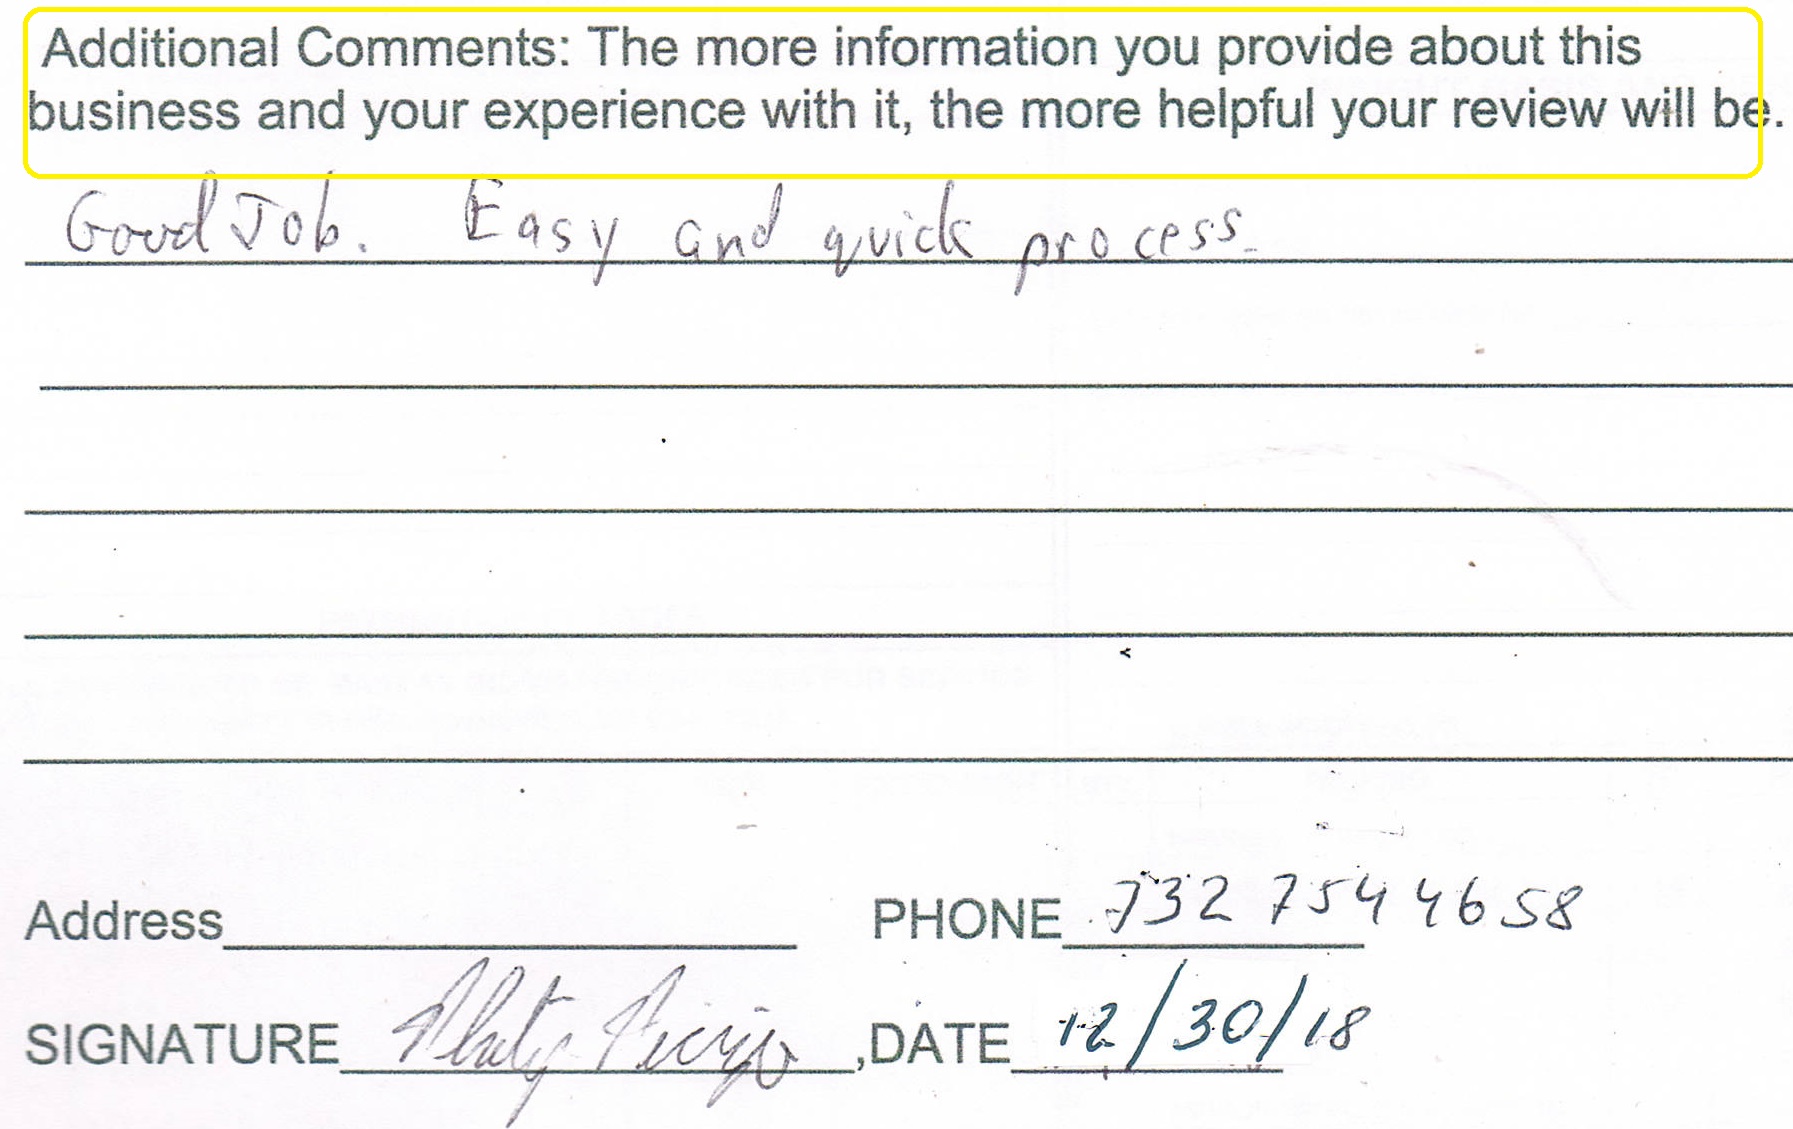 Additional Comments: The more information you provide about this
business and your experience with it, the more helpful your review will be.
Good Job. Easy and quick process.
Address PHONE 732 754 4658
SIGNATURE ,DATE 12/30/18